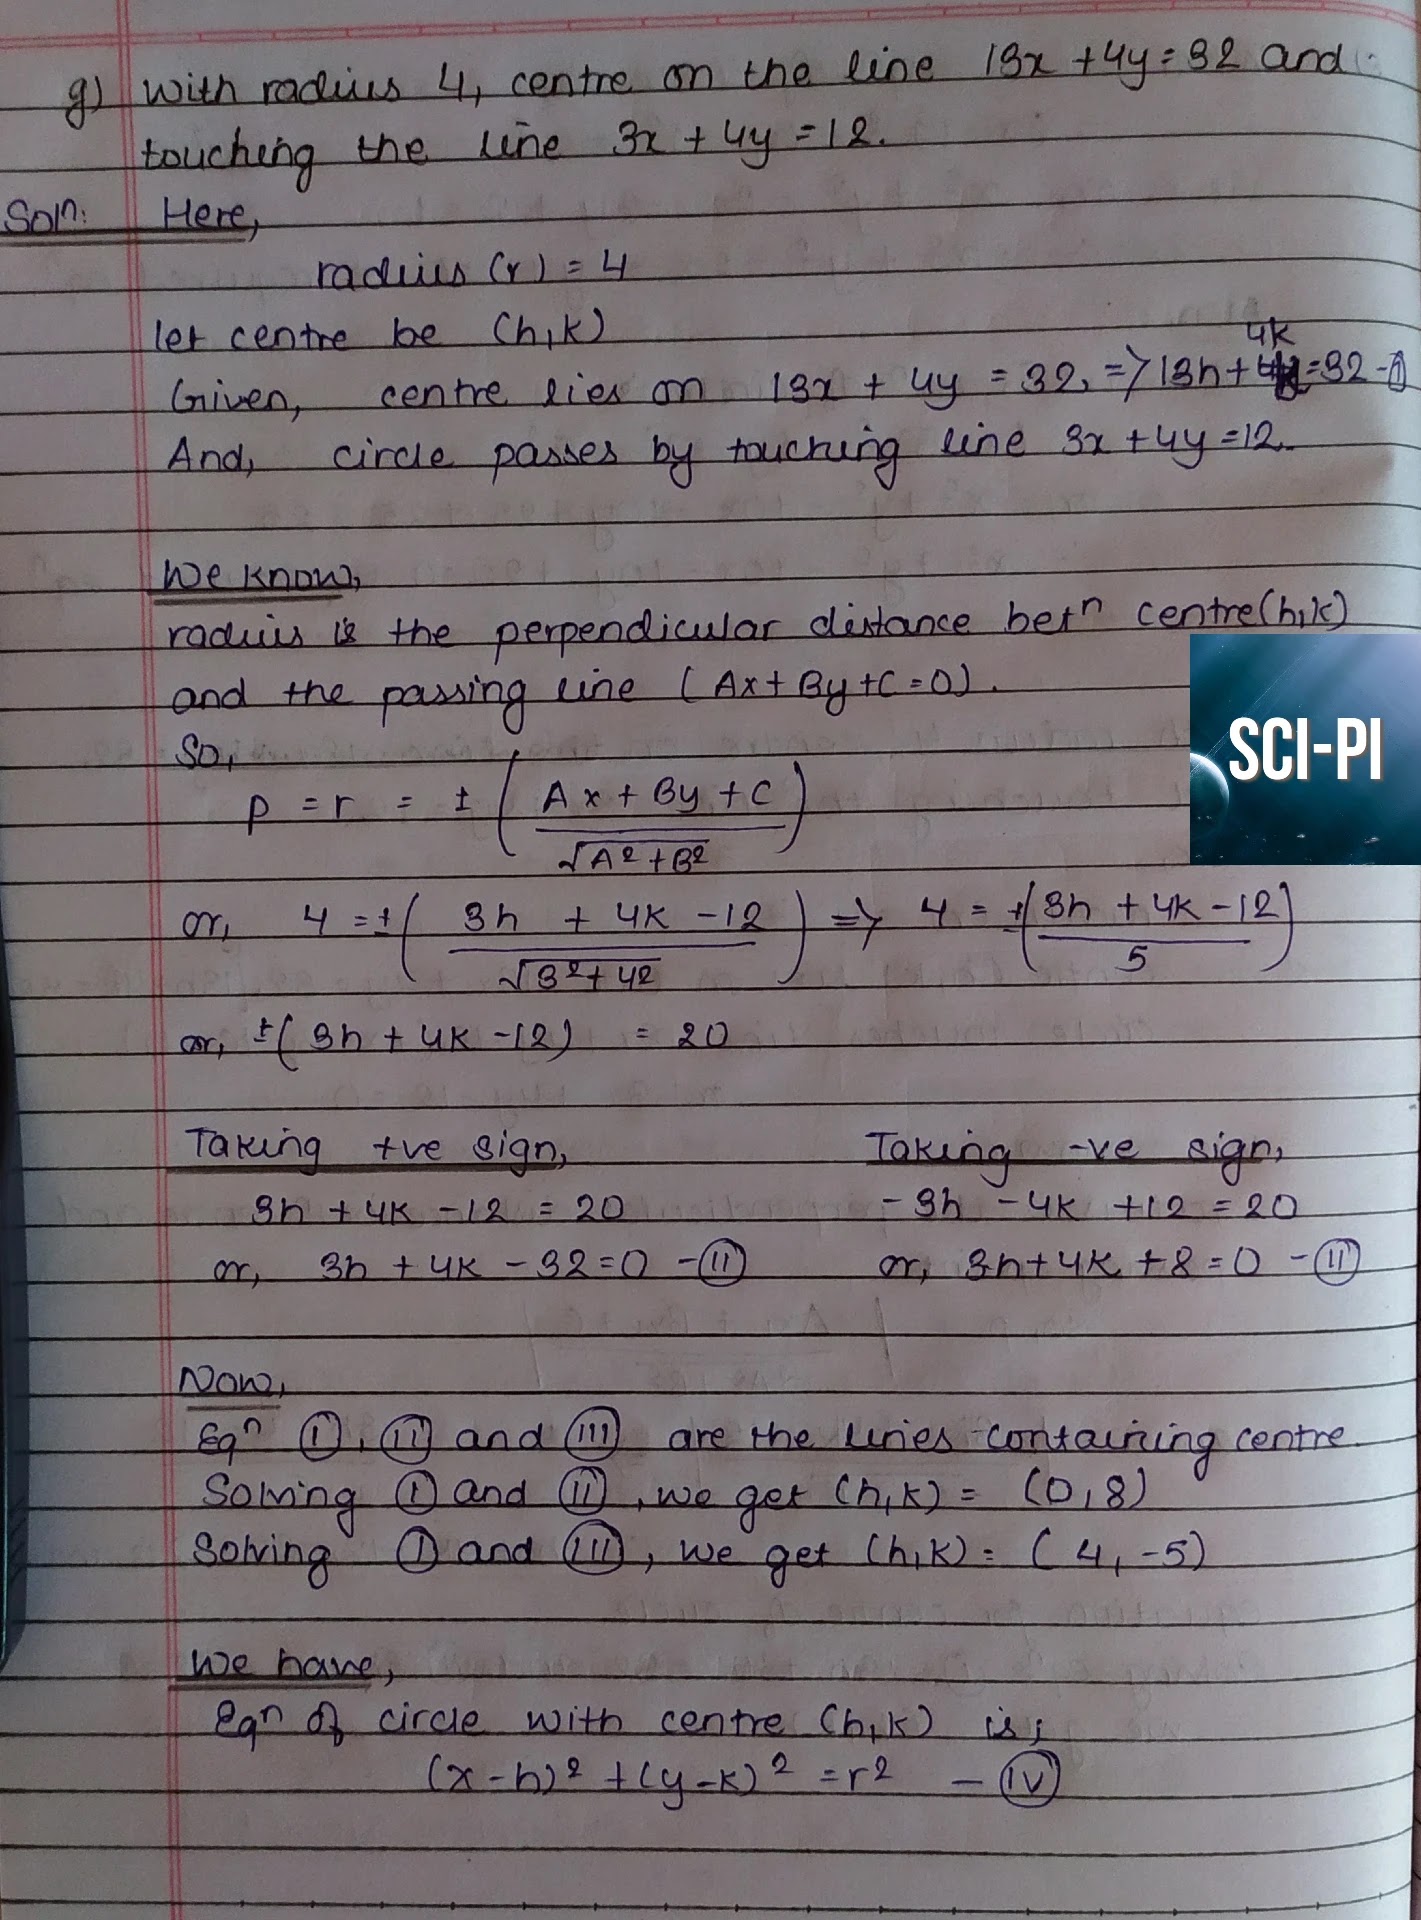 g) with radius 4, centre on the line 13x + 4y = 32 and
touching the line 3x + 4y = 12.
Solⁿ: Here,
radius (r) = 4
let centre be (h,k)
Given, centre lies on 13x + 4y = 32, => 13h + 4k = 32 - ①
And, circle passes by touching line 3x + 4y = 12.
We know,
radius is the perpendicular distance betⁿ centre(h,k)
and the passing line (Ax + By + C = 0).
SCI-PI
So,
P = r = ± ( (Ax + By + C) / √(A² + B²) )
or, 4 = ± ( (3h + 4k - 12) / √(3² + 4²) ) => 4 = ± ( (3h + 4k - 12) / 5 )
or, ± (3h + 4k - 12) = 20
Taking +ve sign, Taking -ve sign,
3h + 4k - 12 = 20 - 3h - 4k + 12 = 20
or, 3h + 4k - 32 = 0 - Ⓘⓘ or, 3h + 4k + 8 = 0 - Ⓘⓘ
Now,
Eqⁿ (I), (II) and (III) are the lines containing centre
Solving (I) and (II), we get (h,k) = (0,8)
Solving (I) and (III), we get (h,k) = (4,-5)
We have,
Eqⁿ of circle with centre (h,k) is;
(x-h)² + (y-k)² = r² - (IV)